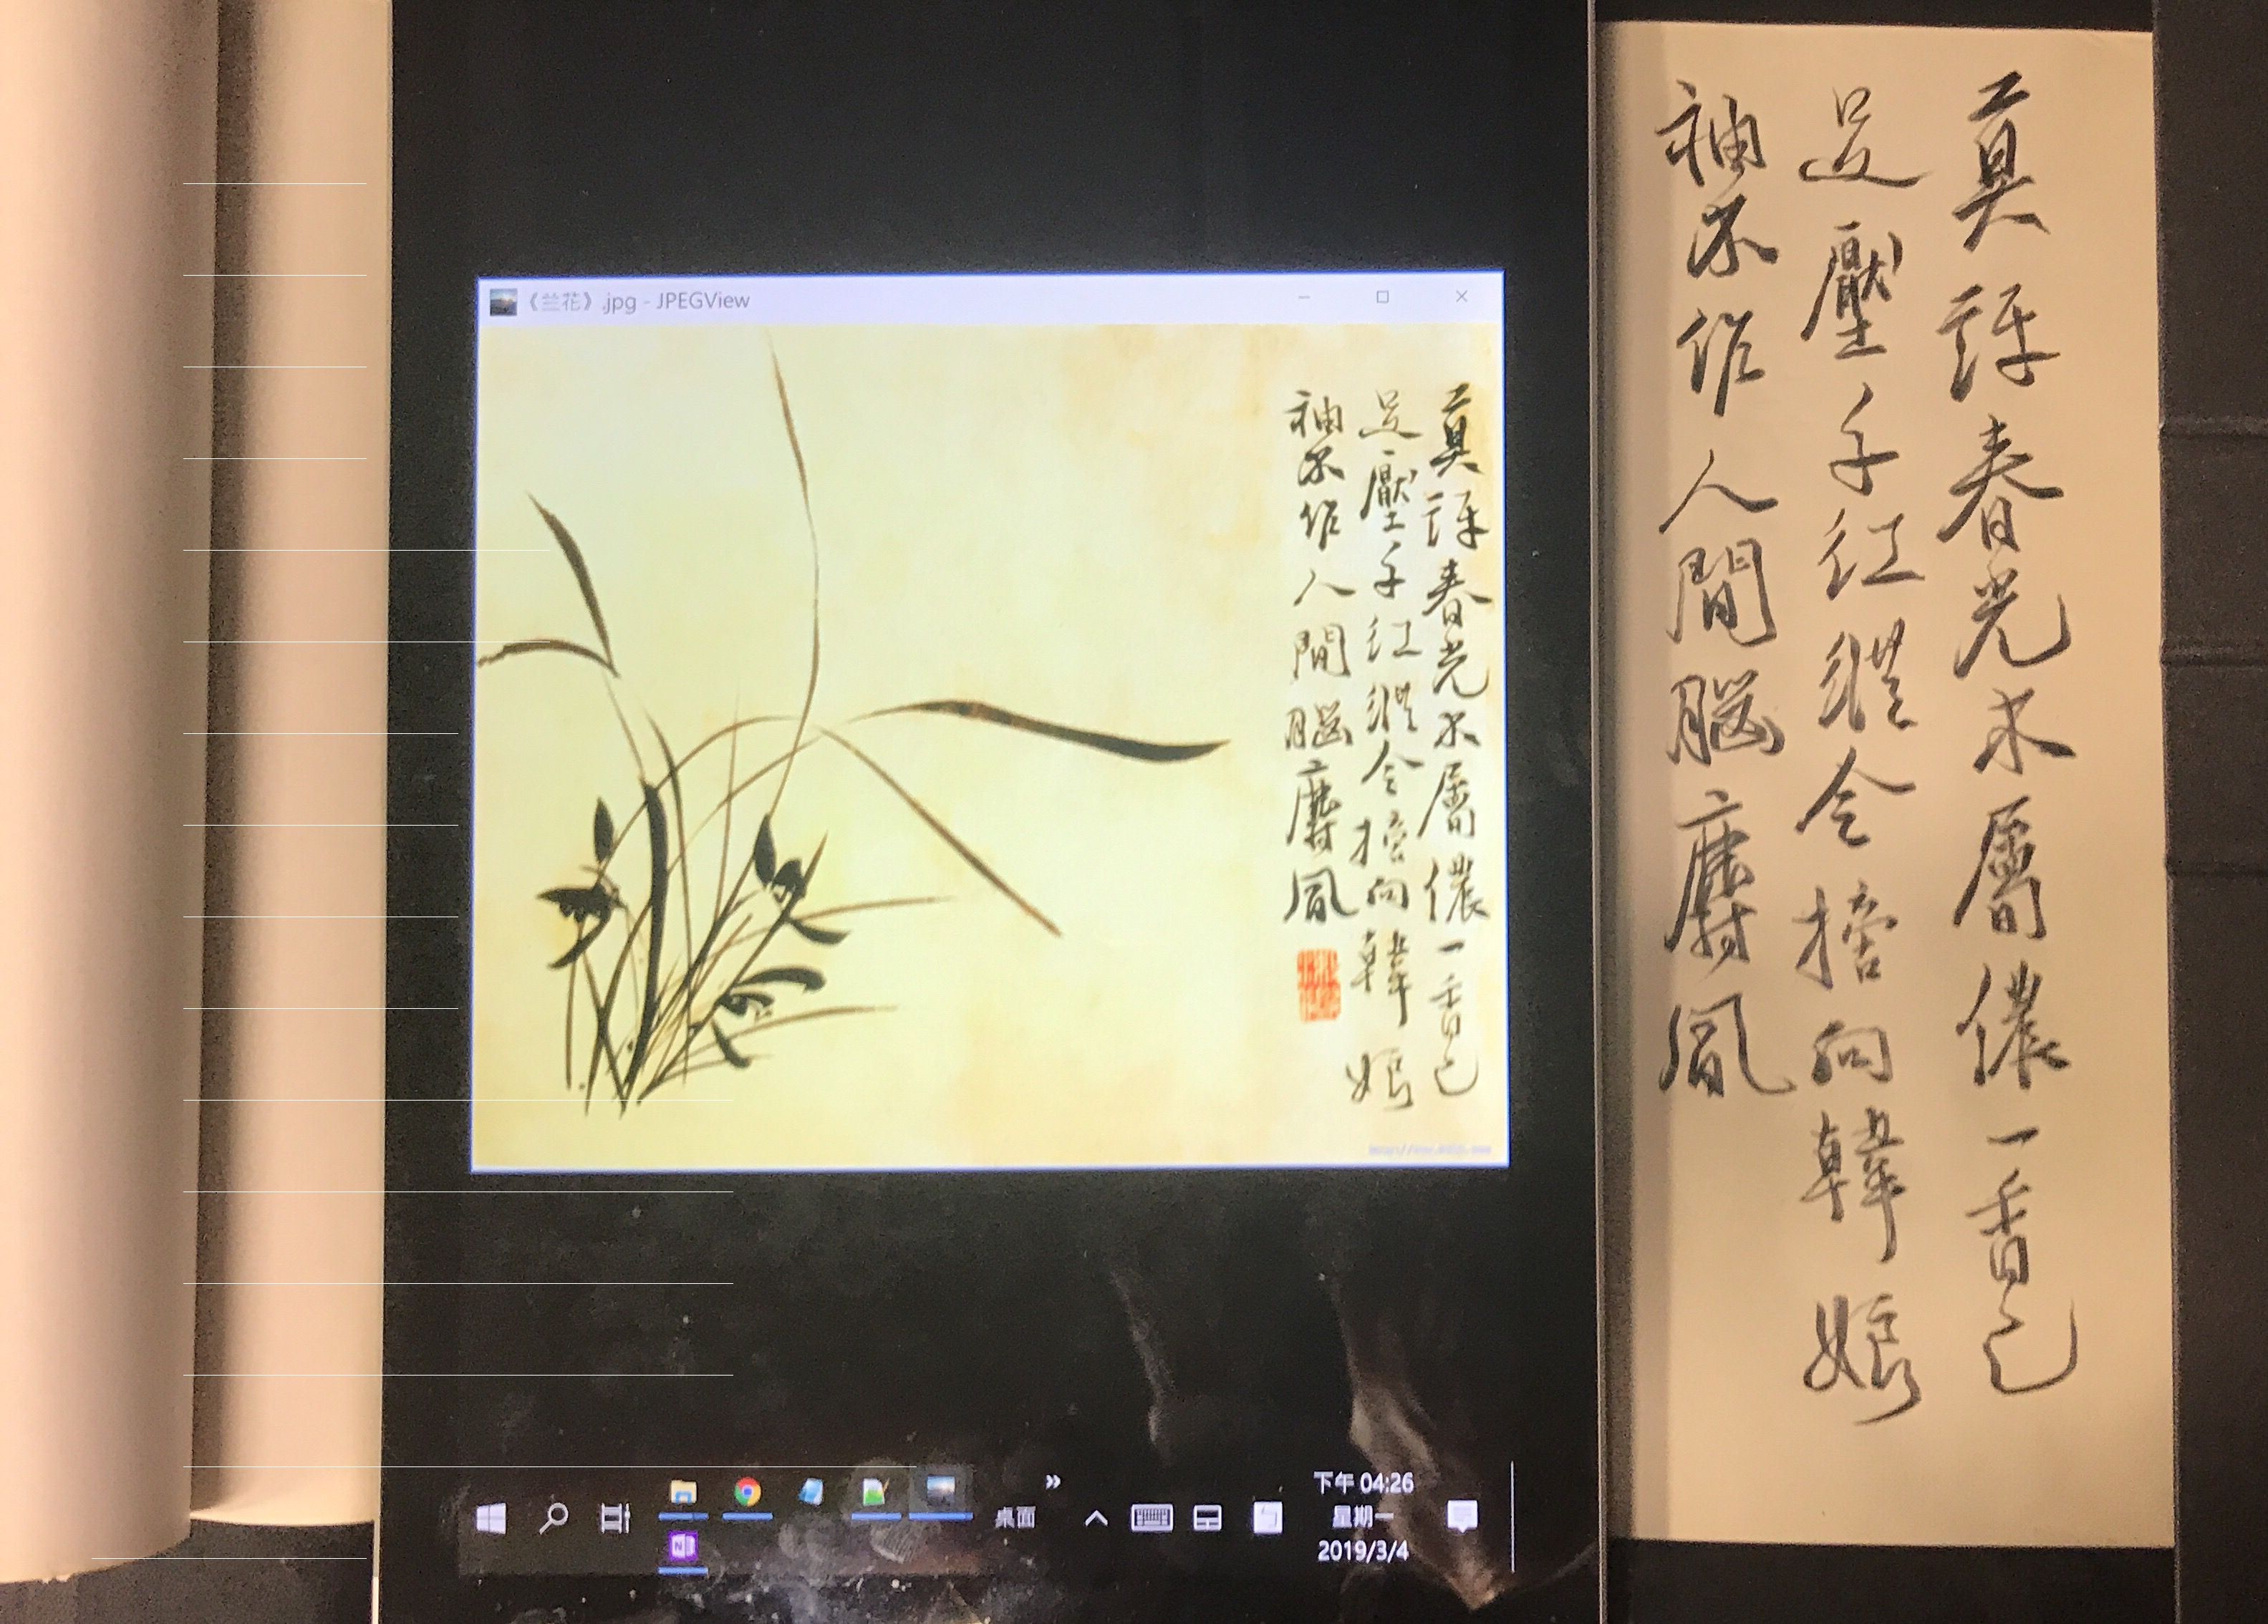 《兰花》.jpg - JPEGView
莫訝春光不屬儂一香已
足壓千紅總令摘向韓娘
袖不作人間腦麝風
莫訝春光不屬儂一香已
足壓千紅總令摘向韓娘
袖不作人間腦麝風
桌面
下午 04:26
星期一
2019/3/4